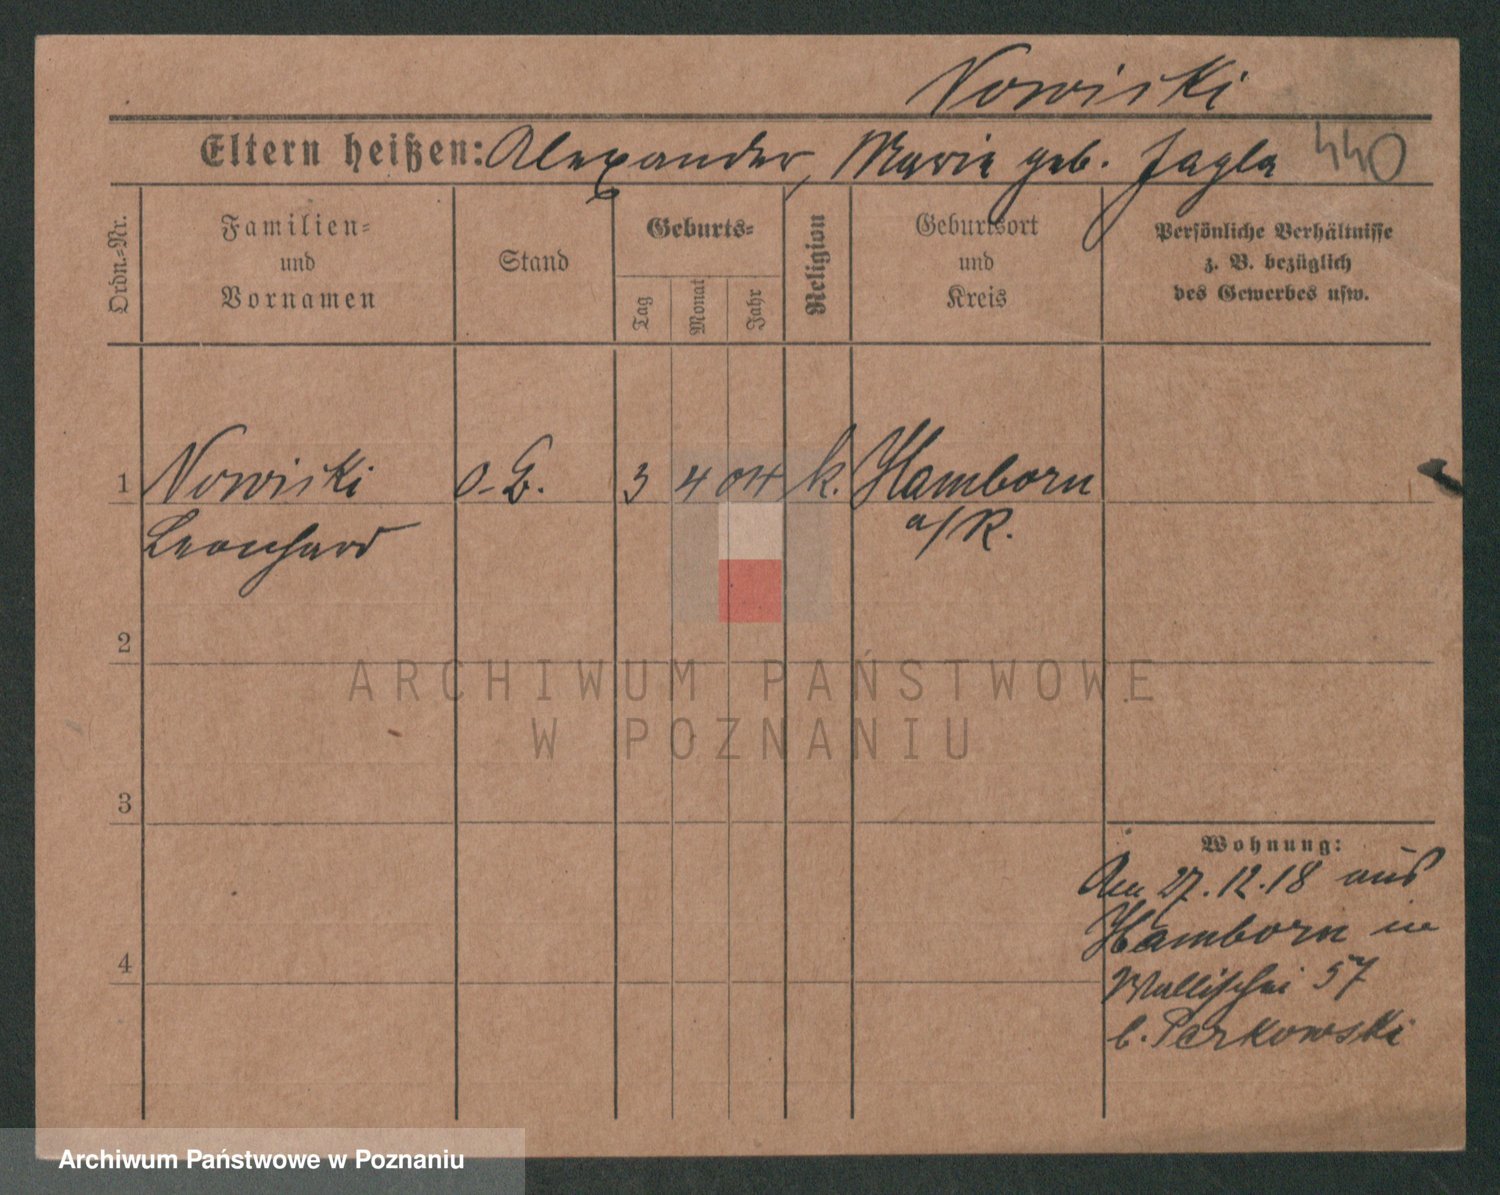 Nowiski
Eltern heißen: Alexander, Marie geb. Jagla 440
Ordn.-Nr.
Familien-
und
Vornamen
Stand
Geburts-
Tag
Monat
Jahr
Religion
Geburtsort
und
Kreis
Persönliche Verhältnisse
z. B. bezüglich
des Gewerbes usw.
1 Nowiski 3 4 04 k. Hamborn
Leonhard a/R.
2
ARCHIWUM PAŃSTWOWE
W POZNANIU
3
Wohnung:
Am 27.12.18 aus
Hamborn in
4
Wallischei 57
b. Perkowski
Archiwum Państwowe w Poznaniu